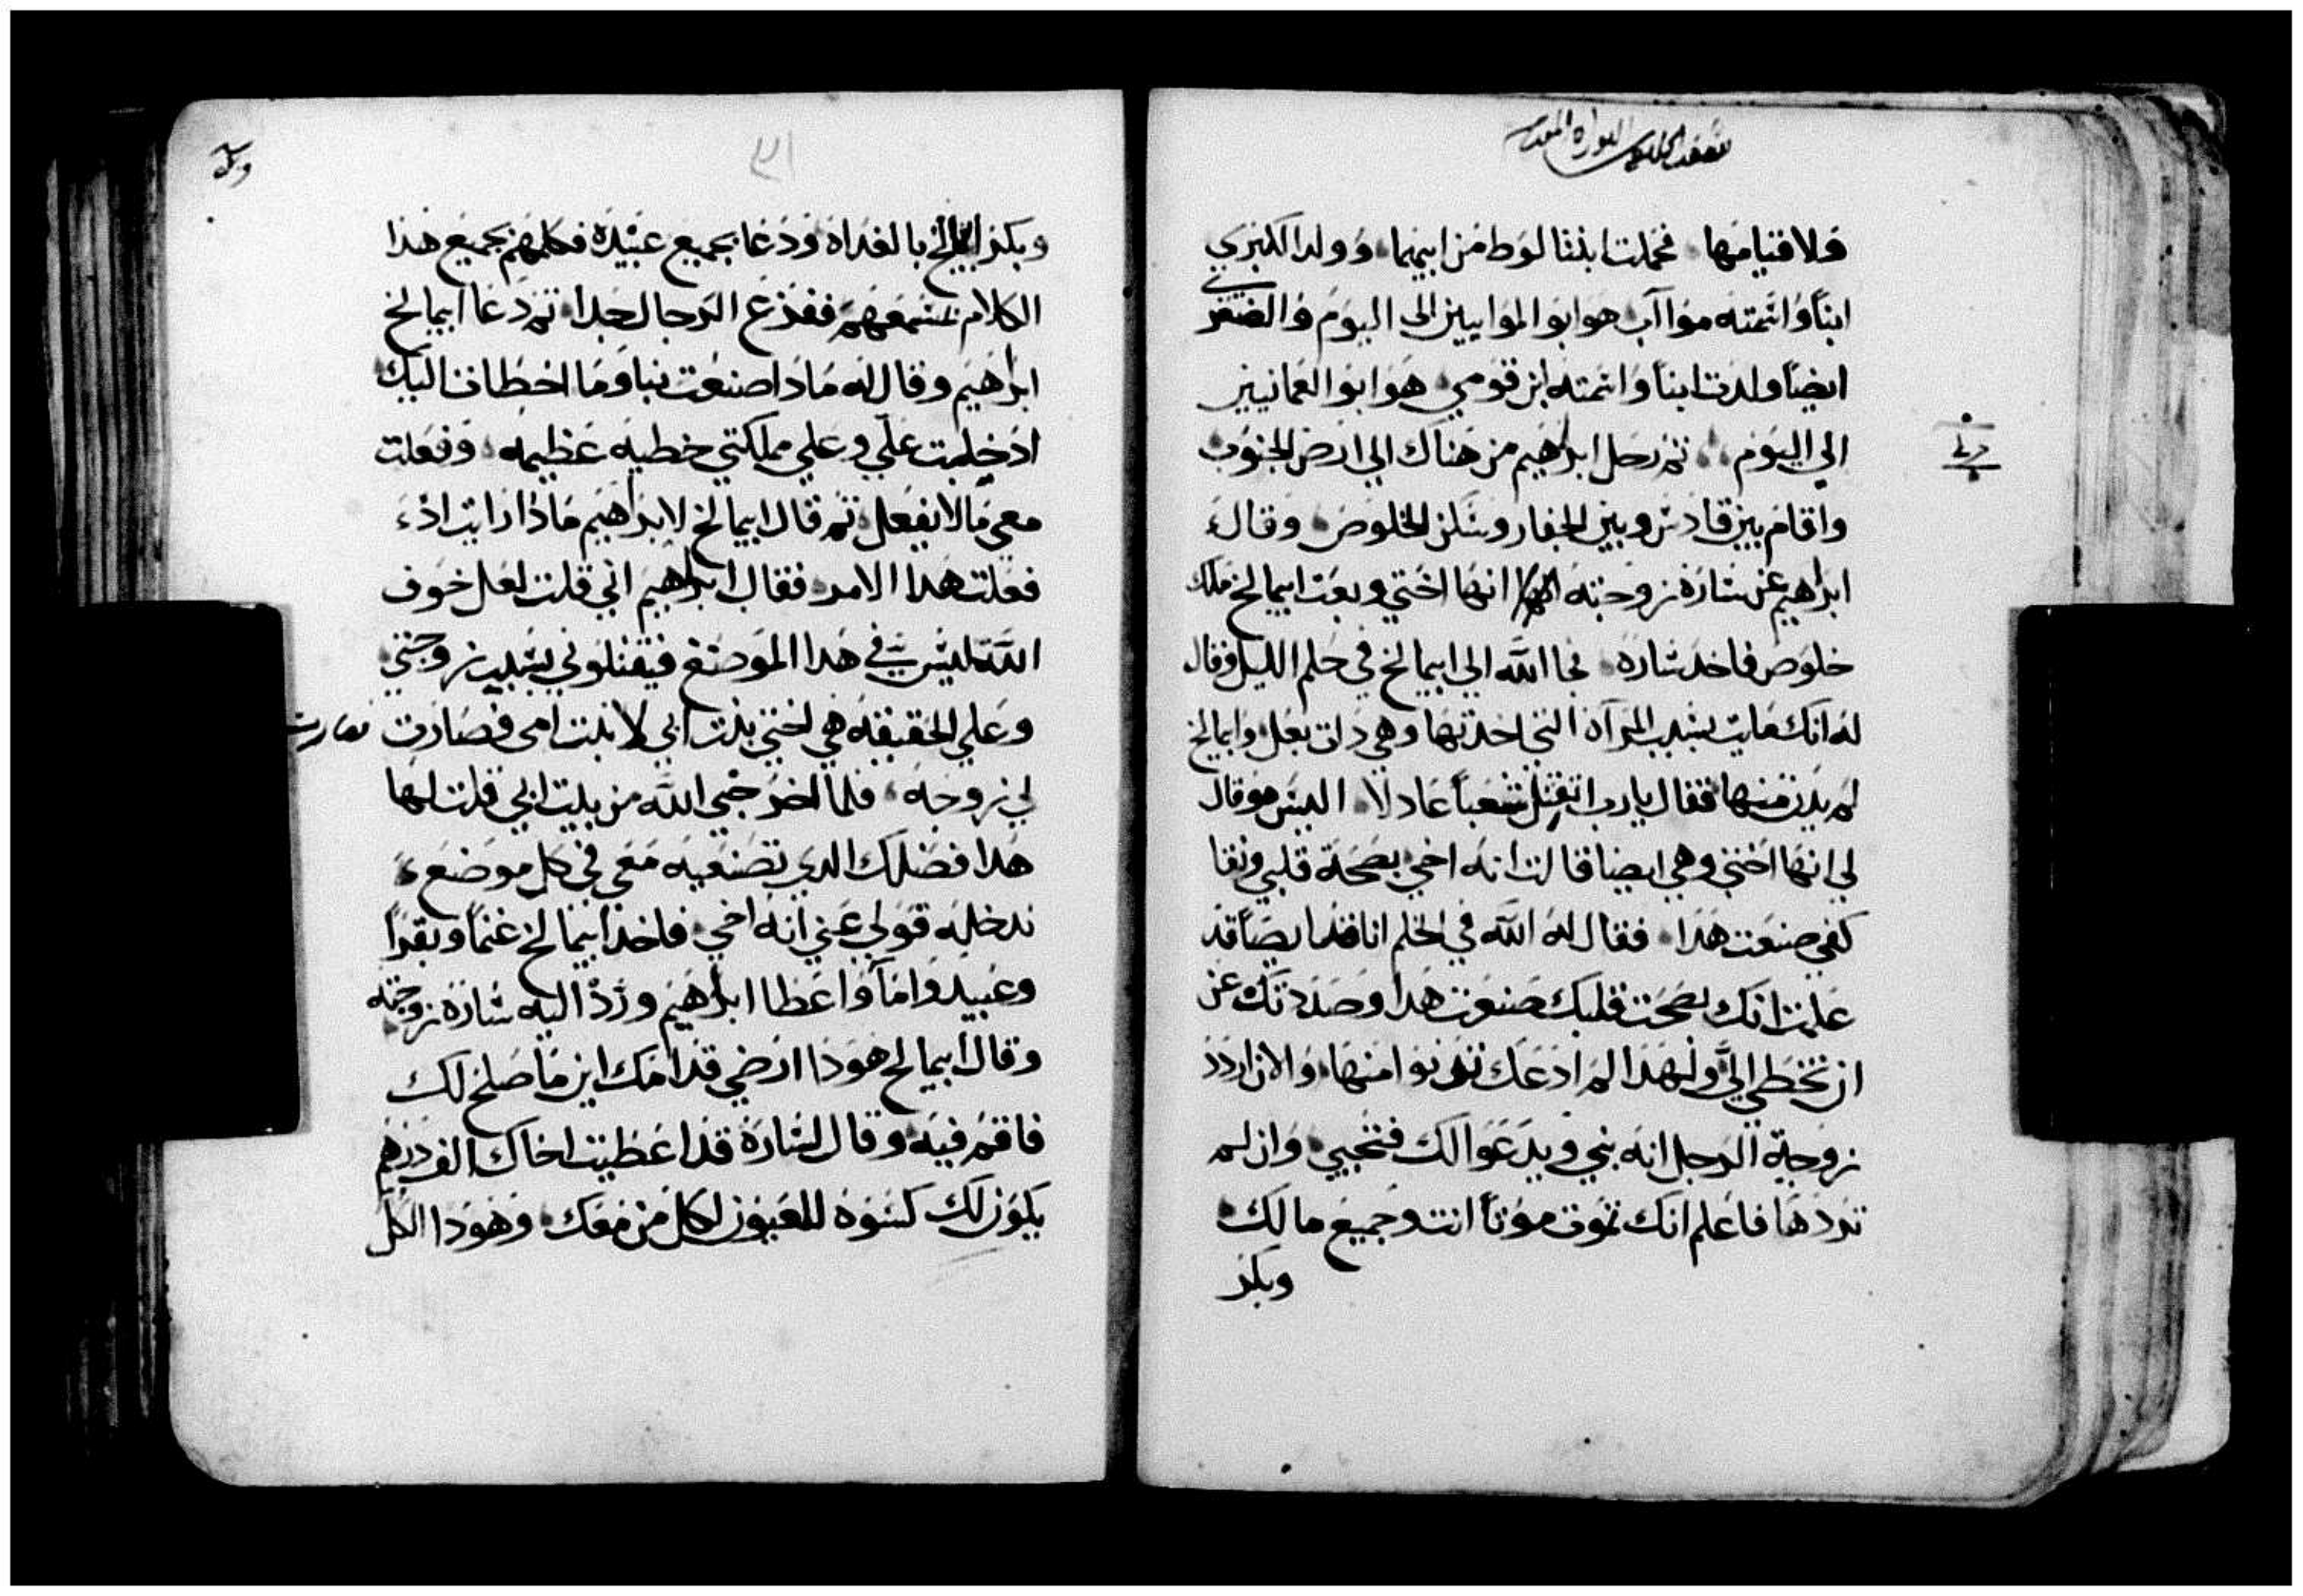 ولا قيامها فحملت ابنتا لوط من ابيهما وولد الكبري
ابناً واسمته مواآب هو ابو الموابيين الى اليوم والصغرى
ايضاً ولدت ابناً واسمته ابن قومي هو ابو العمانيين
الي اليوم ثم رحل ابراهيم من هناك الي ارض الجنوب
واقام بين قادش وبين الجفار وسكن الخلوص وقال
ابراهيم عن سارة زوجته انها اختي وبعت ابيمالخ ملك
خلوص فاخد ساره فجا الله الي ابيمالخ في حلم الليل وقال
له انك مايت بسبب المرآة التي اخدتها وهي دات بعل وابيمالخ
لم يدن منها فقال يارب اتقتل شعباً عادلا اليس هو قال
لي انها اختي وهي ايضا قالت انه اخي بصحة قلبي ونقا
كفي صنعت هدا فقال له الله في الحلم انا ايضا قد
علمت انك بصحت قلبك صنعت هدا وصددتك عن
ان تخطي اليَّ ولهدا لم ادعك تدنوا منها والان اردد
زوجة الرجل انه نبي ويدعوا لك فتحيي وان لم
تردها فاعلم انك تموت موتاً انت وجميع ما لك
وبكر
وبكر ابيمالخ بالغداة ودعا بجميع عبيده فكلمهم بجميع هدا
الكلام ففزع الرجال جدا ثم دعا ابيمالخ
ابراهيم وقال له مادا صنعت بنا وما اخطانا اليك
ادخلت علي وعلي مملكتي خطيه عظيمه وفعلت
معي ما لا يفعل ثم قال ابيمالخ لابراهيم ماذا رايت اذ
فعلت هدا الامر فقال ابراهيم اني قلت لعل خوف
الله ليس في هدا الموضع فيقتلوني بسبب زوجتي
وعلي الحقيقه هي اختي بنت ابي لا بنت امي فصارت
لي زوجه فلما اخرجني الله من بيت ابي قلت لها
هدا فضلك الدي تصنعيه معي في كل موضع
ندخله قولي عني انه اخي فاخد ابيمالخ غنماً وبقراً
وعبيد وامآ واعطا ابراهيم وردّ اليه ساره زوجته
وقال ابيمالخ هودا ارضي قدامك اين ما صلح لك
فاقم فيه وقال لسارة قد اعطيت اخاك الف درهم
يكون لك كسوه للعيون لكل من معك وهودا الكل